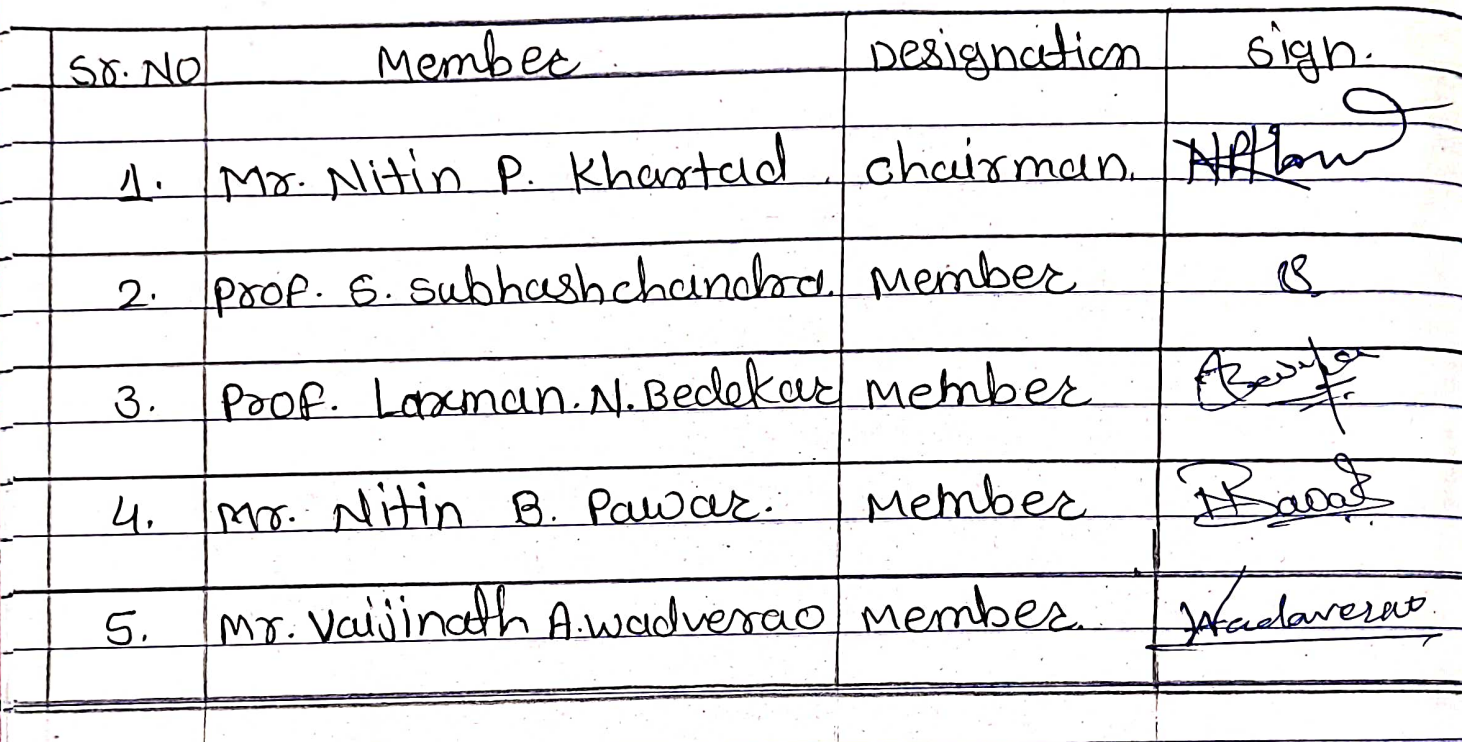 Sr. No Member Designation Sign.
1. Mr. Nitin P. Khartad. Chairman.
2. Prof. S. Subhashchandra. Member
3. Prof. Laxman. N. Bedekar Member
4. Mr. Nitin B. Pawar. Member
5. Mr. Vaijinath A. Wadverao Member. Wadaverao